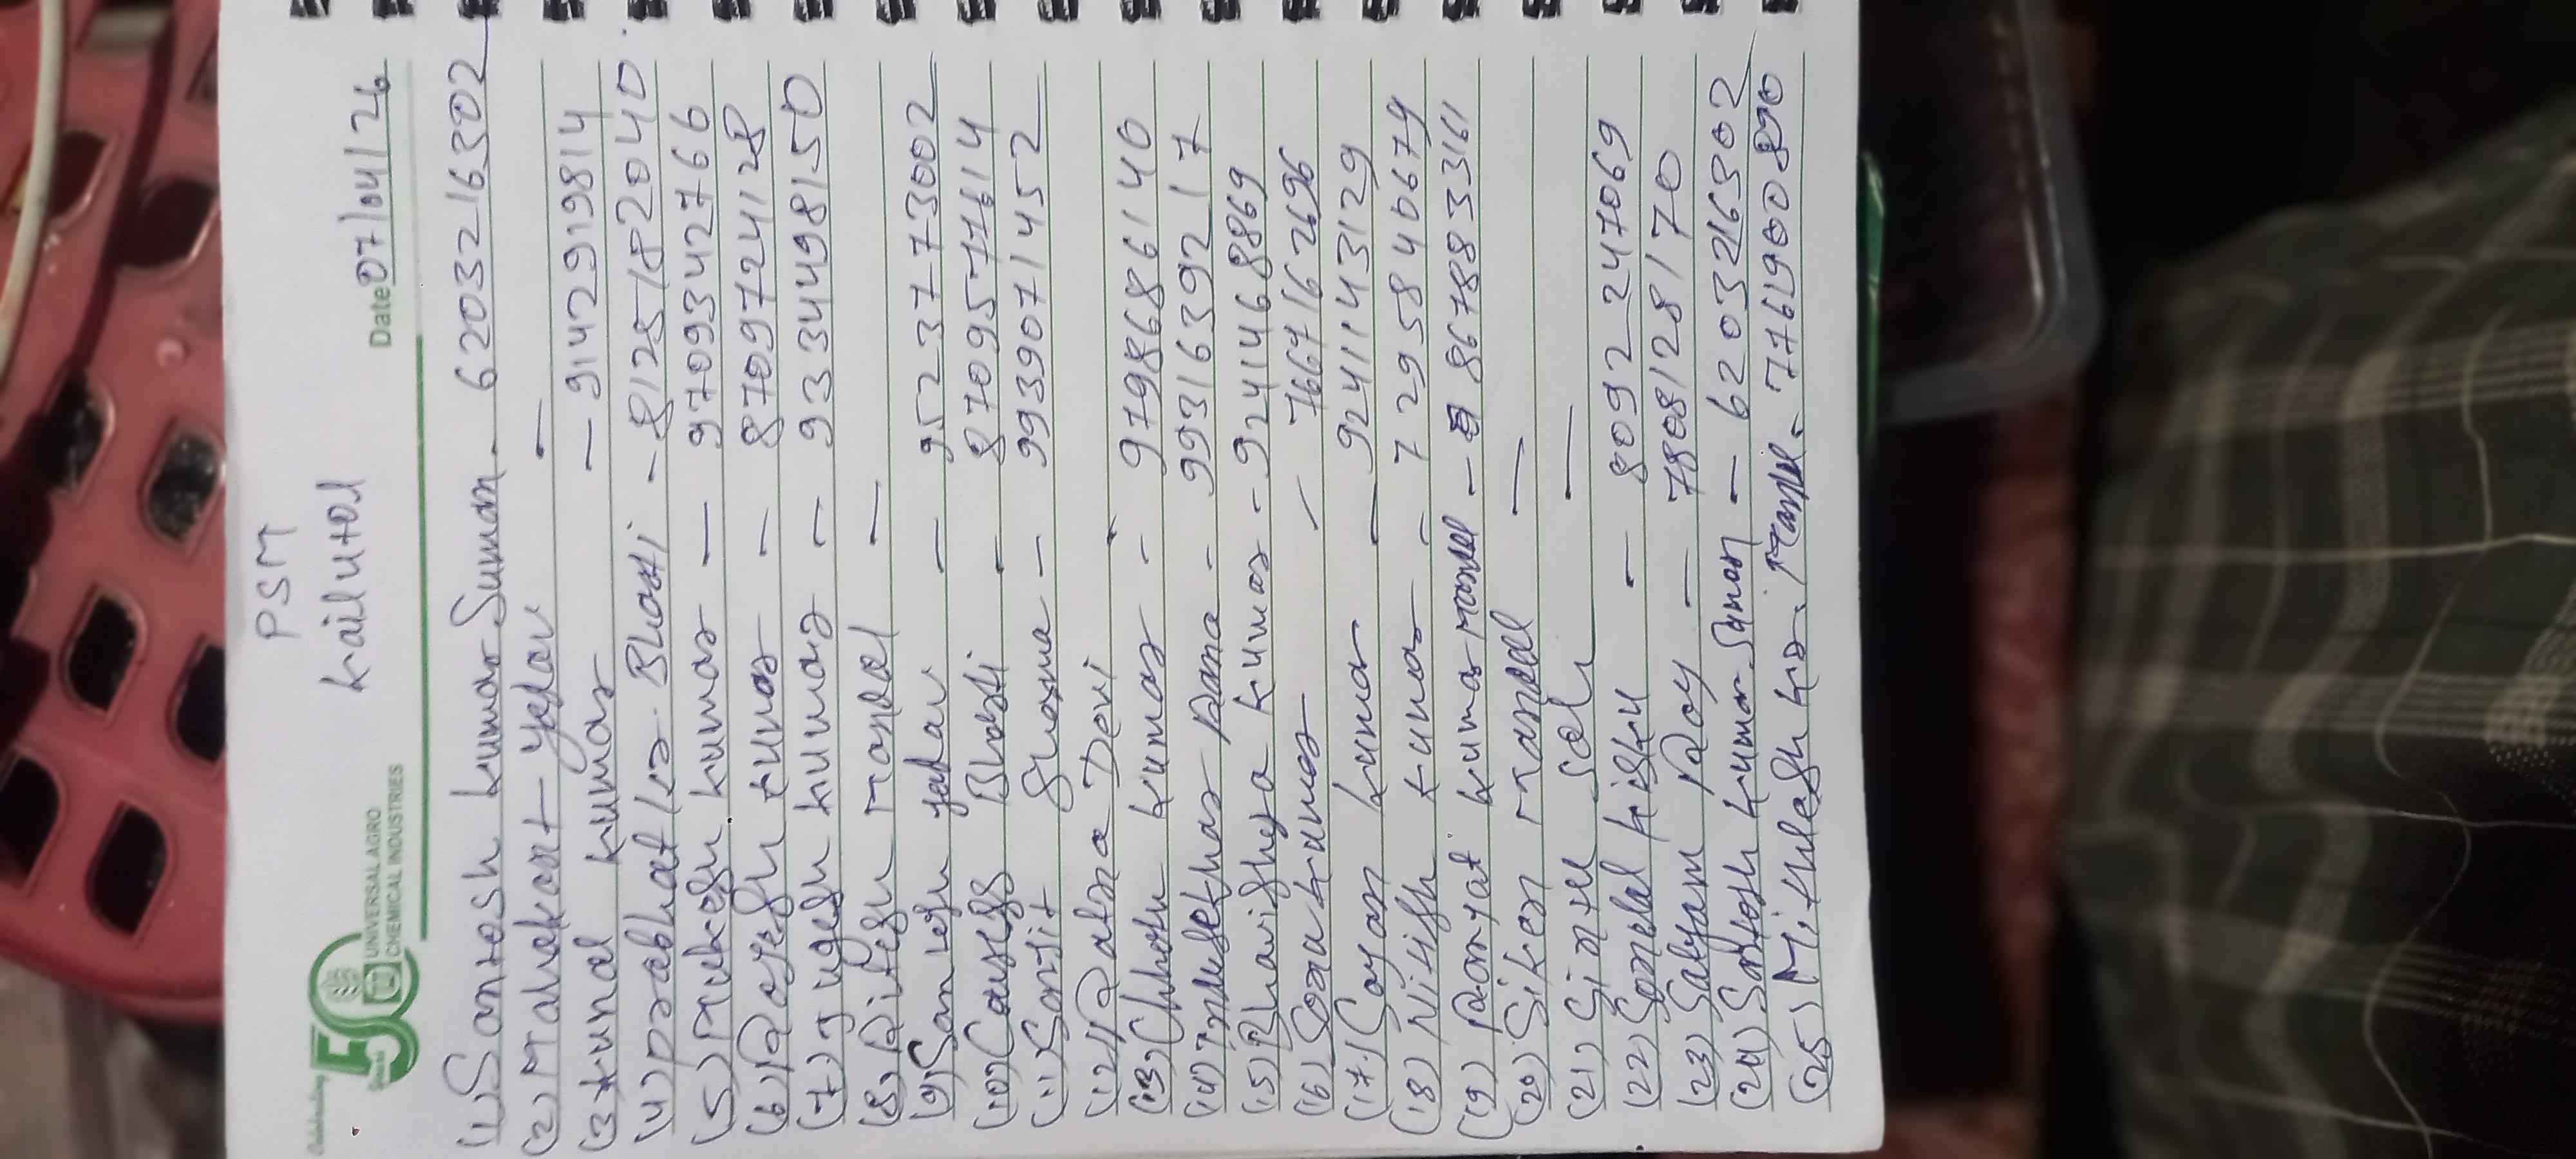 PSM
Kailutol
Celebrating
50
UNIVERSAL AGRO
CHEMICAL INDUSTRIES
Date 07/04/26
(1) Santosh kumar Suman. 6203216302
(2) Mahakant yadav —
(3) kunal kumar — 9142919814
(4) prabhat kr. Bharti - 8125182040
(5) Mukesh kumar — 9709342766
(6) Rajesh kumar — 8709724128
(7) Jugesh kumar — 9334498150
(8) Ritesh Mandal —
(9) Sanjesh yadav — 9523773002
(10) Bharti - 8709577614
(11) Sanjit Sharma — 9939071452
(12) Ratna Devi
(13) Chhotu kumar - 9798686140
(14) Indusekhar - 9931639217
(15) Bhavishya kumar - 9241468869
(16) kumar - 7667162696
(17) Gayan kumar — 9241143129
(18) Nitish kumar - 7295840679
(19) Ranjat kumar Mandal - 8678833161
(20) Siken Mandal —
(21) Gintu Sah —
(22) Sonelal kisku — 8092247069
(23) Satyam Roy — 7808128170
(24) Santosh kumar Suman — 6203216302
(25) Mithlesh kr. Mandal - 7761900890